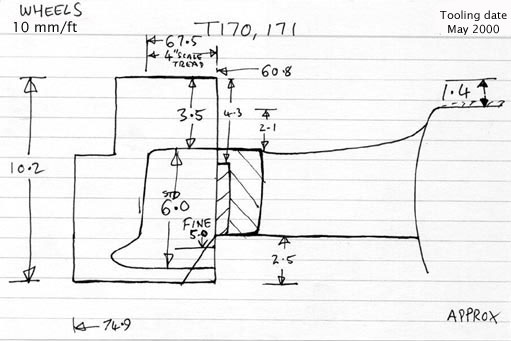 WHEELS
10 mm/ft
T170, 171
Tooling date
May 2000
67.5
4" SCALE
TREAD
60.8
1.4
3.5
4.3
2.1
10.2
STD
6.0
FINE
5.0
2.5
74.9
APPROX